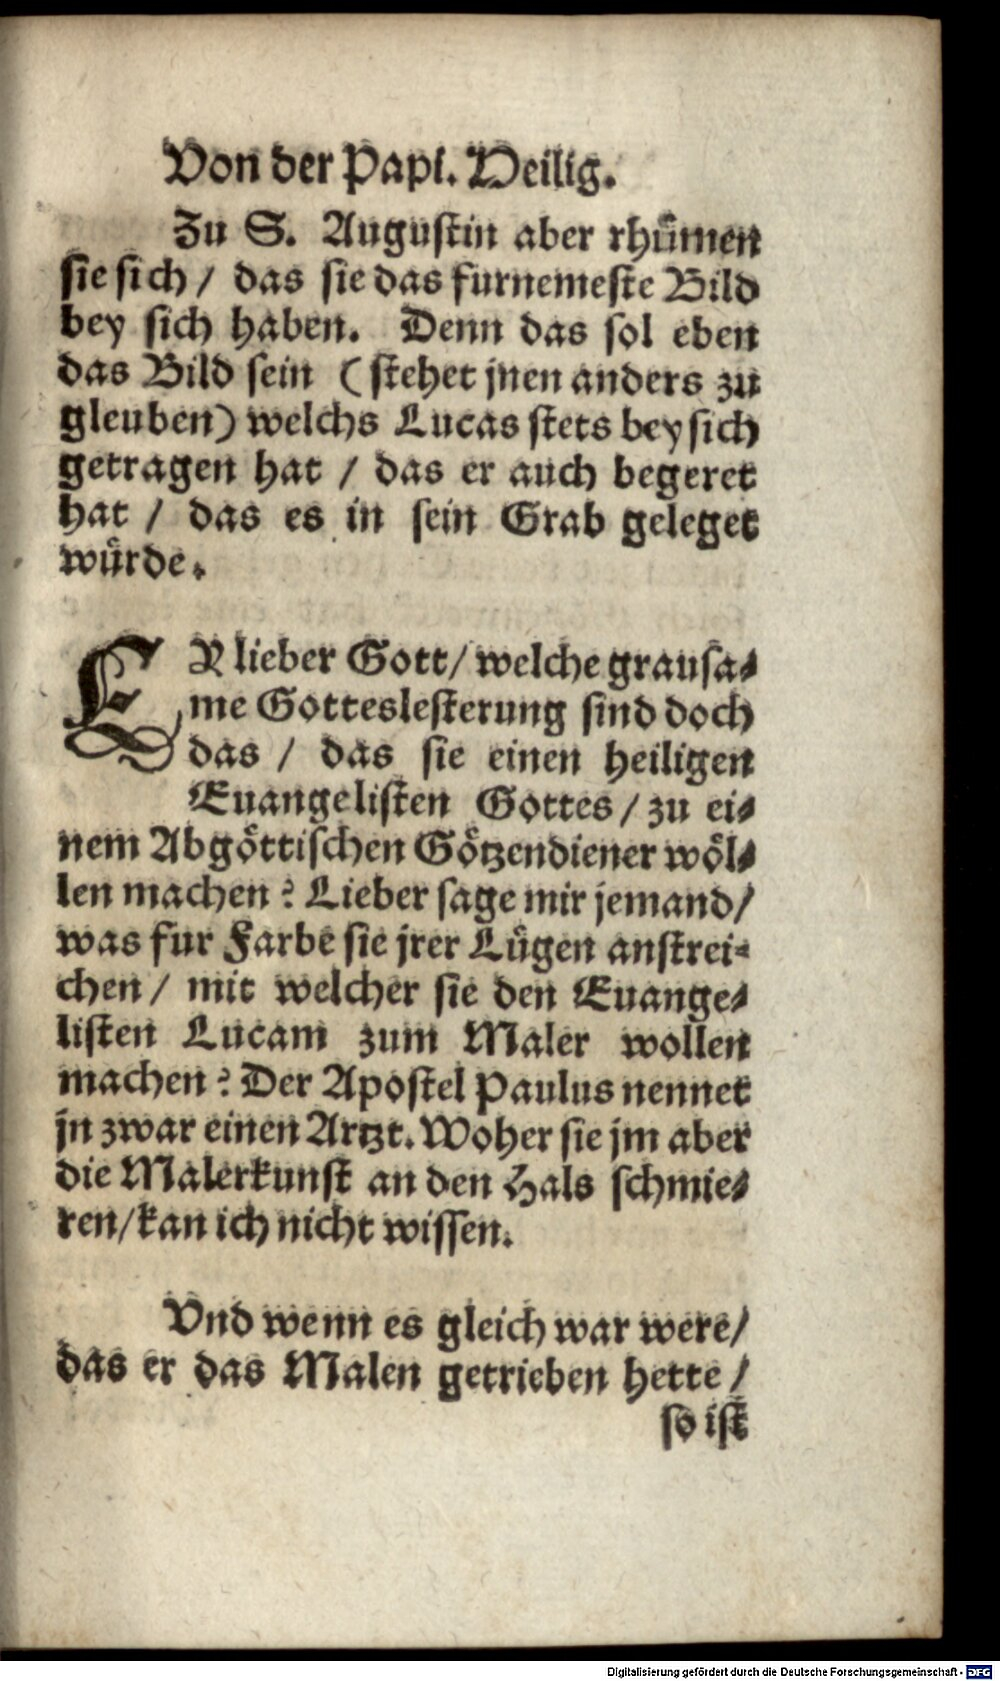 Von der Papſ. Heilig.
Zu S. Auguſtin aber rhuͤmen
ſie ſich / das ſie das furnemeſte Bild
bey ſich haben. Denn das ſol eben
das Bild ſein (ſtehet jnen anders zu
gleuben) welchs Lucas ſtets bey ſich
getragen hat / das er auch begeret
hat / das es in ſein Grab geleget
wuͤrde.
ER lieber Gott / welche grauſa⸗
me Gotteslefterung ſind doch
das / das ſie einen heiligen
Euangeliſten Gottes / zu ei⸗
nem Abgoͤttiſchen Goͤtzendiener woͤl⸗
len machen? Lieber ſage mir jemand /
was fur Farbe ſie jrer Luͤgen anſtrei⸗
chen / mit welcher ſie den Euange⸗
liſten Lucam zum Maler wollen
machen? Der Apoſtel Paulus nennet
jn zwar einen Artzt. Woher ſie jm aber
die Malerkunſt an den Hals ſchmie⸗
ren / kan ich nicht wiſſen.
Vnd wenn es gleich war were /
das er das Malen getrieben hette /
ſo iſt
Digitalisierung gefördert durch die Deutsche Forschungsgemeinschaft - DFG